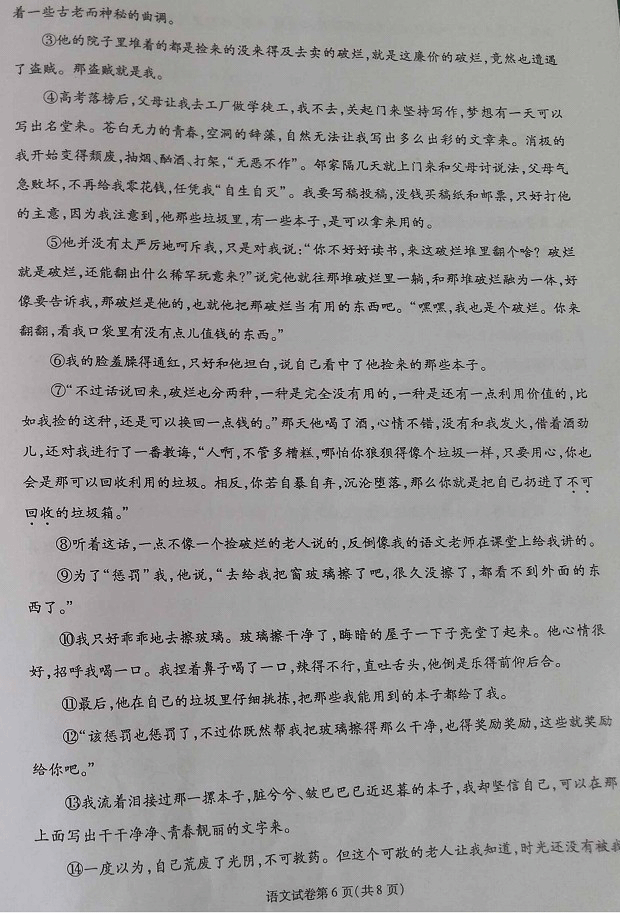 着一些古老而神秘的曲调。
③他的院子里堆着的都是捡来的没来得及去卖的破烂,就是这廉价的破烂,竟然也遭遇
了盗贼。那盗贼就是我。
④高考落榜后,父母让我去工厂做学徒工,我不去,关起门来坚持写作,梦想有一天可以
写出名堂来。苍白无力的青春,空洞的辞藻,自然无法让我写出多么出彩的文章来。消极的
我开始变得颓废,抽烟、酗酒、打架,“无恶不作”。邻家隔几天就上门来和父母讨说法,父母气
急败坏,不再给我零花钱,任凭我“自生自灭”。我要写稿投稿,没钱买稿纸和邮票,只好打他
的主意,因为我注意到,他那些垃圾里,有一些本子,是可以拿来用的。
⑤他并没有太严厉地呵斥我,只是对我说:“你不好好读书,来这破烂堆里翻个啥?破烂
就是破烂,还能翻出什么稀罕玩意来?”说完他就往那堆破烂里一躺,和那堆破烂融为一体,好
像要告诉我,那破烂是他的,也就他把那破烂当有用的东西吧。“嘿嘿,我也是个破烂。你来
翻翻,看我口袋里有没有点儿值钱的东西。”
⑥我的脸羞臊得通红,只好和他坦白,说自己看中了他捡来的那些本子。
⑦“不过话说回来,破烂也分两种,一种是完全没有用的,一种是还有一点利用价值的,比
如我捡的这种,还是可以换回一点钱的。”那天他喝了酒,心情不错,没有和我发火,借着酒劲
儿,还对我进行了一番教诲,“人啊,不管多糟糕,哪怕你狼狈得像个垃圾一样,只要用心,你也
会是那可以回收利用的垃圾。相反,你若自暴自弃,沉沦堕落,那么你就是把自己扔进了不可
回收的垃圾箱。”
⑧听着这话,一点不像一个捡破烂的老人说的,反倒像我的语文老师在课堂上给我讲的。
⑨为了“惩罚”我,他说,“去给我把窗玻璃擦了吧,很久没擦了,都看不到外面的东
西了。”
⑩我只好乖乖地去擦玻璃。玻璃擦干净了,晦暗的屋子一下子亮堂了起来。他心情很
好,招呼我喝一口。我捏着鼻子喝了一口,辣得不行,直吐舌头,他倒是乐得前仰后合。
⑪最后,他在自己的垃圾里仔细挑拣,把那些我能用到的本子都给了我。
⑫“该惩罚也惩罚了,不过你既然帮我把玻璃擦得那么干净,也得奖励奖励,这些就奖励
给你吧。”
⑬我流着泪接过那一摞本子,脏兮兮、皱巴巴已近迟暮的本子,我却坚信自己,可以在那
上面写出干干净净、青春靓丽的文字来。
⑭一度以为,自己荒废了光阴,不可救药。但这个可敬的老人让我知道,时光还没有被我
语文试卷第6页(共8页)